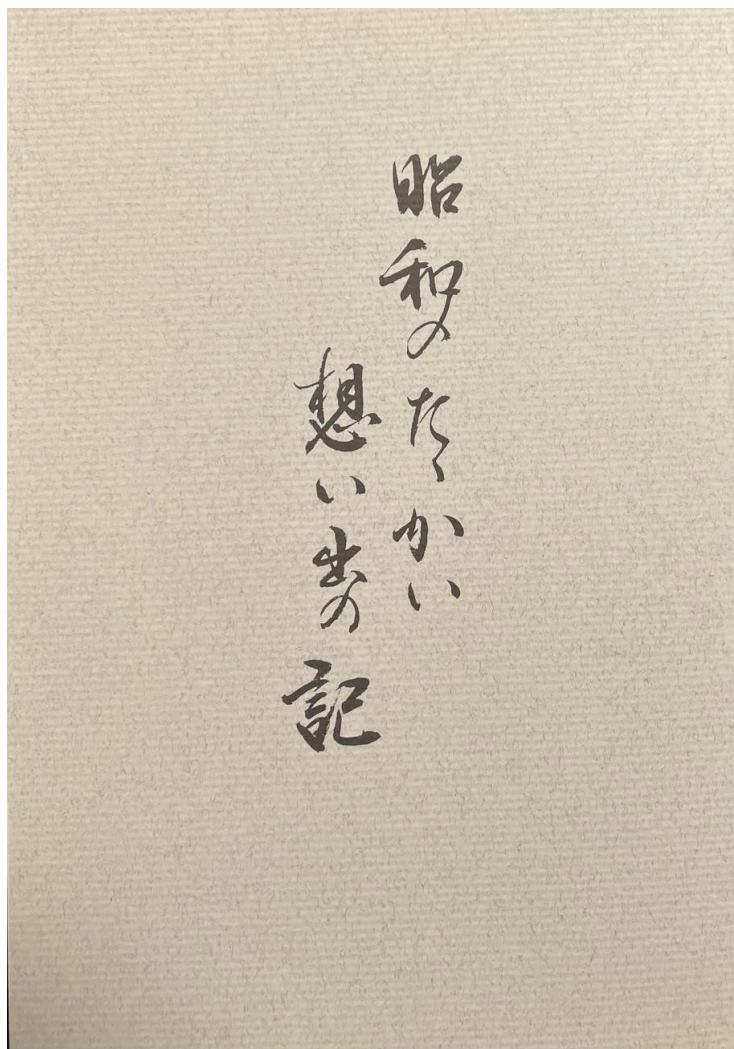 昭和のたゝかい
想い出の記